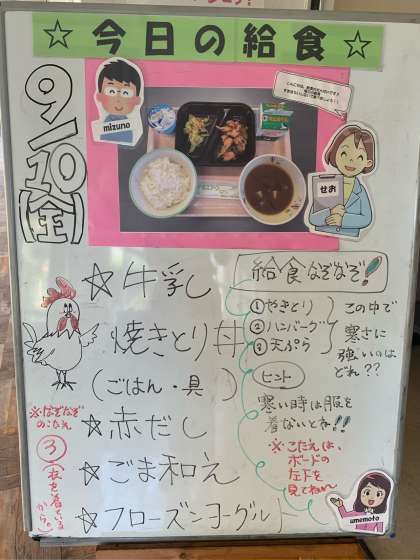 ☆ 今日の給食 ☆
9/10(金)
mizuno
せお
☆牛乳
焼きとり丼
(ごはん・具)
☆赤だし
☆ごま和え
☆フローズンヨーグルト
給食なぞなぞ!
①やきとり
②ハンバーグ
③天ぷら
この中で
寒さに
強いのは
どれ??
ヒント
寒い時は服を
着ないとね!!
※こたえは、
ボードの
左下を
見てねm
※なぞなぞ
のこたえ
③
(衣を着てる
から。)
umemoto